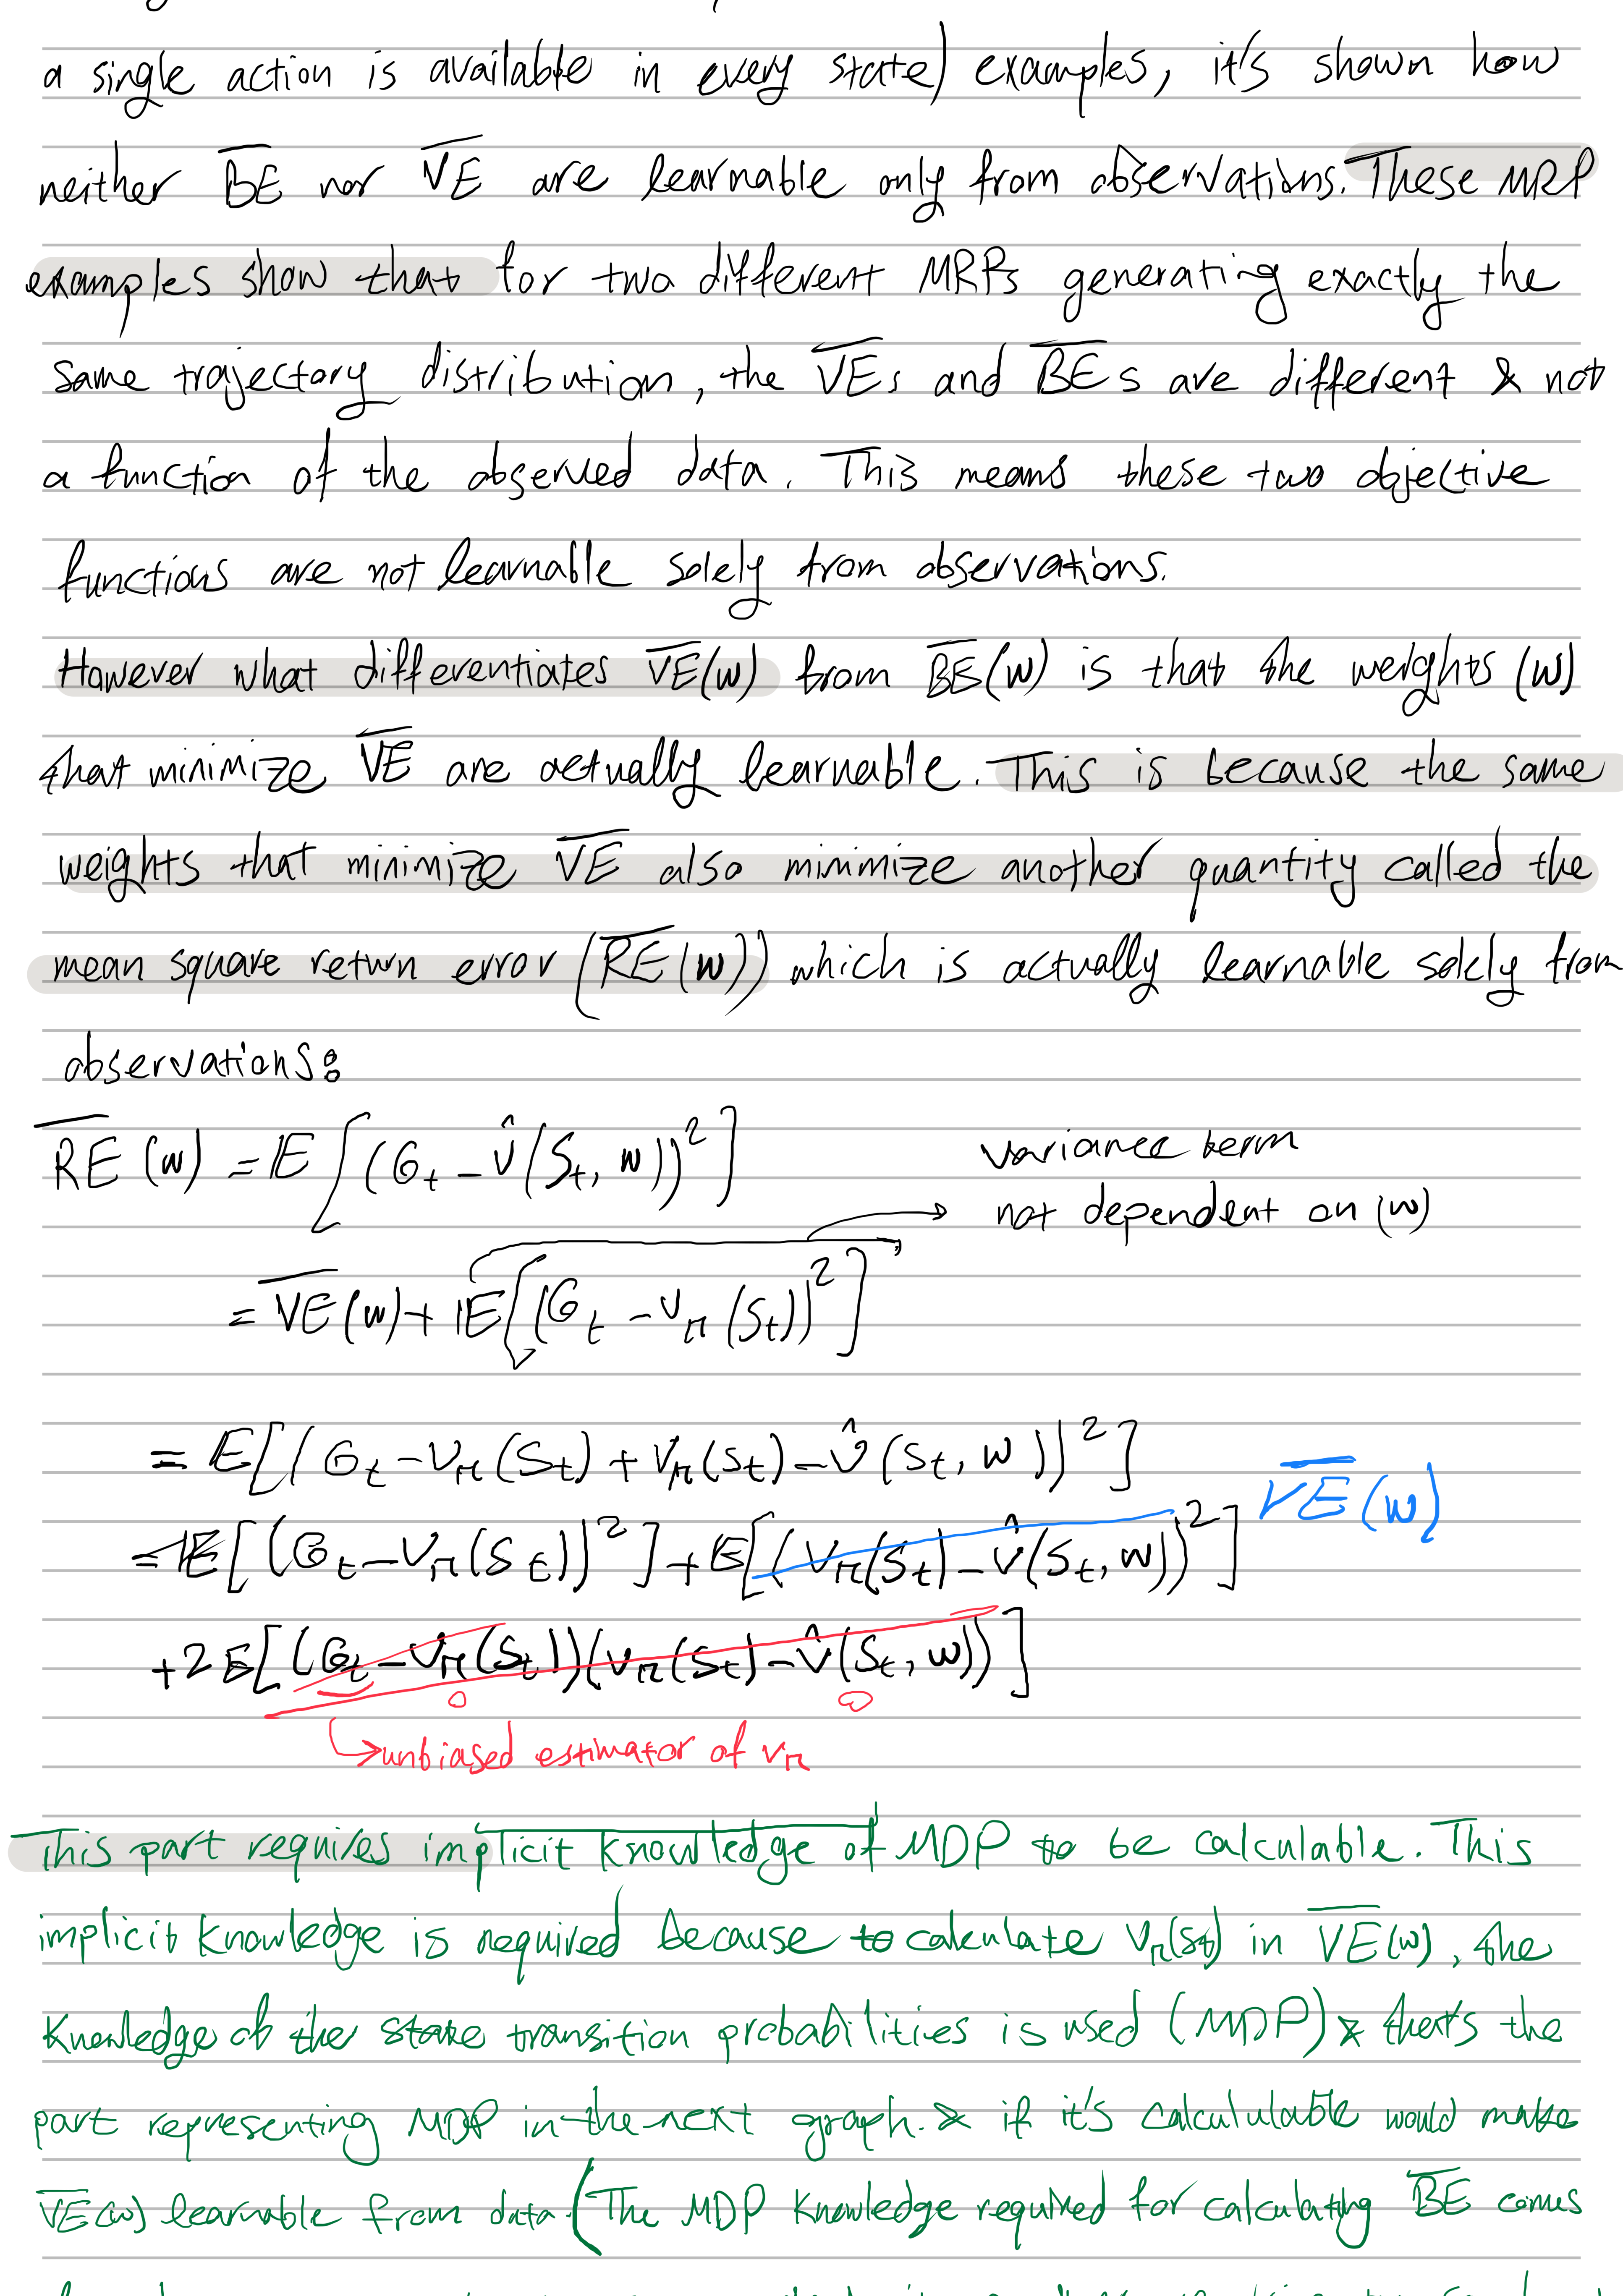 a single action is available in every state) examples, it's shown how
neither B̅E̅ nor V̅E̅ are learnable only from observations. These MRP
examples show that for two different MRPs generating exactly the
same trajectory distribution, the V̅E̅s and B̅E̅s are different & not
a function of the observed data. This means these two objective
functions are not learnable solely from observations.
However what differentiates V̅E̅(w) from B̅E̅(w) is that the weights (w)
that minimize V̅E̅ are actually learnable. This is because the same
weights that minimize V̅E̅ also minimize another quantity called the
mean square return error (R̅E̅(w)) which is actually learnable solely from
observations:
R̅E̅(w) = 𝔼[(G_t - v̂(S_t, w))²]
variance term
not dependent on (w)
= V̅E̅(w) + 𝔼[(G_t - v_π(S_t))²]
= 𝔼[(G_t - v_π(S_t) + v_π(S_t) - v̂(S_t, w))²]
V̅E̅(w)
= 𝔼[(G_t - v_π(S_t))²] + 𝔼[(v_π(S_t) - v̂(S_t, w))²]
+ 2𝔼[(G_t - v_π(S_t))(v_π(S_t) - v̂(S_t, w))]
0 0
→ unbiased estimator of v_π
This part requires implicit knowledge of MDP to be calculable. This
implicit knowledge is required because to calculate v_π(S_t) in V̅E̅(w), the
knowledge of the state transition probabilities is used (MDP) & that's the
part representing MDP in the next graph. & if it's calcululable would make
V̅E̅(w) learnable from data. (The MDP knowledge required for calculating B̅E̅ comes